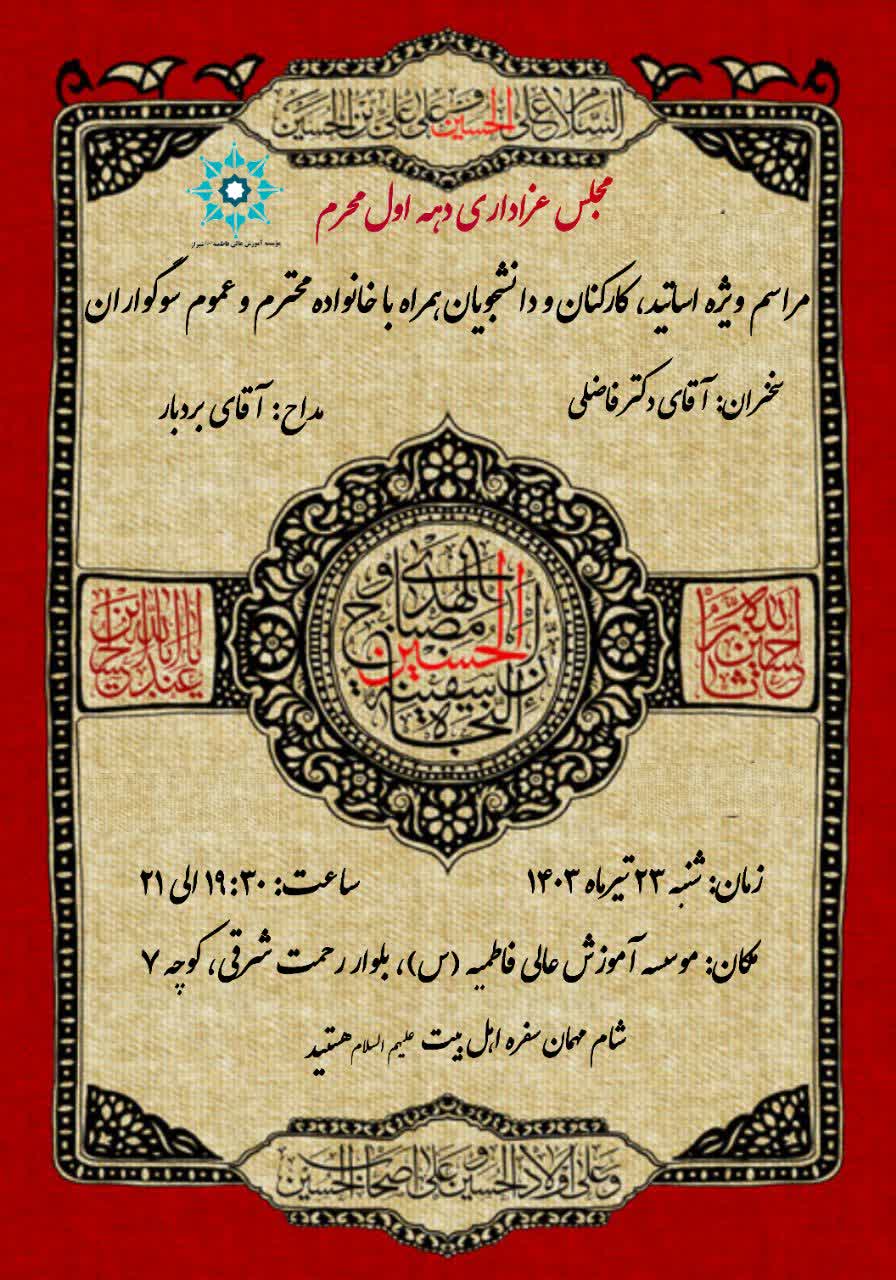 السلام علی الحسین و علی علی بن الحسین
مجلس عزاداری دهه اول محرم
موسسه آموزش عالی فاطمیه شیراز
مراسم ویژه اساتید، کارکنان و دانشجویان همراه با خانواده محترم و عموم سوگواران
سخنران: آقای دکتر فاضلی
مداح: آقای بردبار
ان الحسین مصباح الهدی و سفینة النجاة
یا ابا عبدالله
زمان: شنبه ۲۳ تیرماه ۱۴۰۳
ساعت: ۱۹:۳۰ الی ۲۱
مکان: موسسه آموزش عالی فاطمیه (س)، بلوار رحمت شرقی، کوچه ۷
شام مهمان سفره اهل بیت علیهم السلام هستید
و علی اولاد الحسین و علی اصحاب الحسین